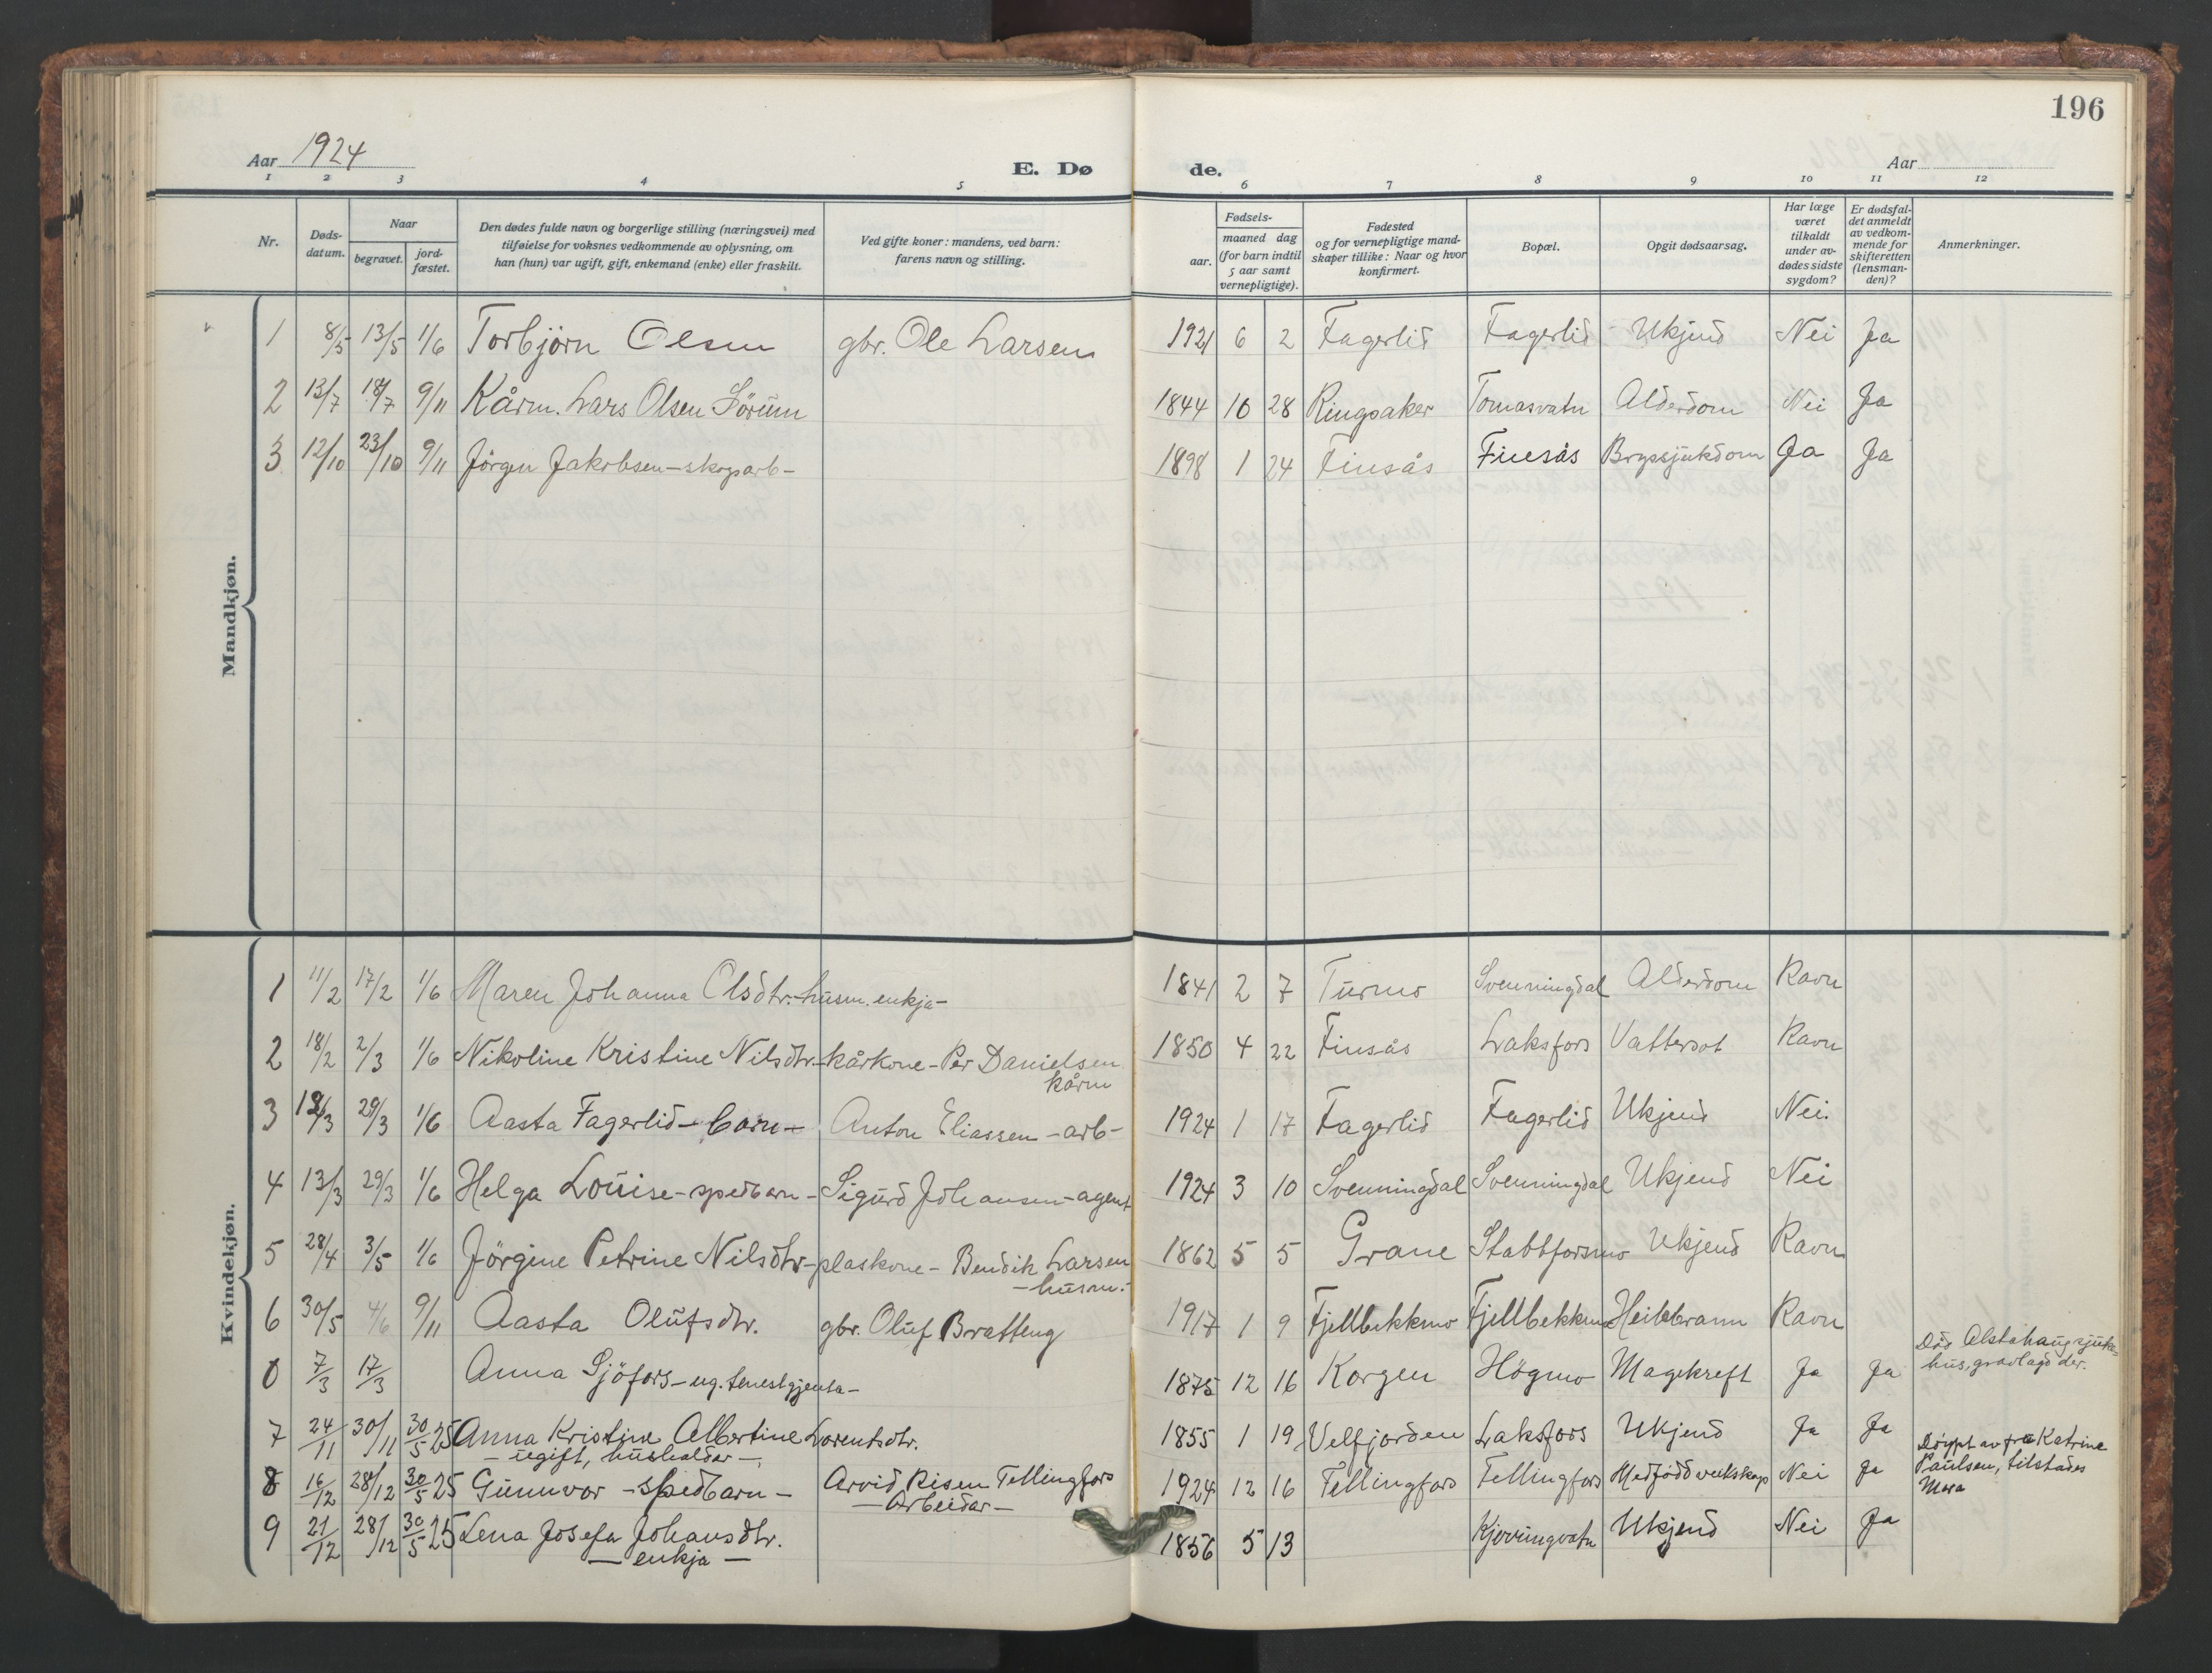 196
Aar 1924
E. Dø
de.
Aar
1 2 3 4 5 6 7 8 9 10 11 12
Nr.
Døds-
datum.
Naar
begravet.
jord-
fæstet.
Den dødes fulde navn og borgerlige stilling (næringsvei) med
tilføielse for voksnes vedkommende av oplysning, om
han (hun) var ugift, gift, enkemand (enke) eller fraskilt.
Ved gifte koner: mandens, ved barn:
farens navn og stilling.
Fødsels-
aar.
maaned dag
(for barn indtil
5 aar samt
vernepligtige).
Fødested
og for vernepligtige mand-
skaper tillike: Naar og hvor
konfirmert.
Bopæl.
Opgit dødsaarsag.
Har læge
været
tilkaldt
under av-
dødes sidste
sygdom?
Er dødsfal-
det anmeldt
av vedkom-
mende for
skifteretten
(lensman-
den)?
Anmerkninger.
Mandkjøn.
1 8/5 13/5 1/6 Torbjørn Olsen gbr. Ole Larsen 1921 6 2 Fagerlid Fagerlid Ukjend Nei Ja
2 13/7 18/7 9/11 Kårm. Lars Olsen Sörum 1844 10 28 Ringsaker Tomasvatn Alderdom Nei Ja
3 12/10 23/10 9/11 Jörgen Jakobsen - skogsarb - 1898 1 24 Finsås Finsås Brystsjukdom Ja Ja
Kvindekjøn.
1 11/2 17/2 1/6 Maren Johanna Olsdtr. - husm. enkja - 1841 2 7 Turmo Svenningdal Alderdom Ravn
2 18/2 2/3 1/6 Nikoline Kristine Nilsdtr. - kårkone - Per Danielsen 1850 4 22 Finsås Laksfors Vattersot Ravn
kårm
3 /3 29/3 1/6 Aasta Fagerlid - barn - Anton Eliassen - arb - 1924 1 17 Fagerlid Fagerlid Ukjend Nei.
4 13/3 29/3 1/6 Helga Louise - spedbarn - Sigurd Johansen - agent 1924 3 10 Svenningdal Svenningdal Ukjend Nei
5 28/4 3/5 1/6 Jörgine Petrine Nilsdtr - plaskone - Bendik Larsen 1862 5 5 Grane Stabbforsmo Ukjend Ravn
- husm. -
6 30/5 4/6 9/11 Aasta Olufsdtr. gbr. Oluf Bratteng 1917 1 9 Fjellbekkmo Fjellbekkmo Heilebrann Ravn
0 7/3 17/3 Anna Sjöfors - ug. tenestgjenta - 1875 12 16 Korgen Högmo Magekreft Ja Ja Död Alstahaug sjuke-
hus, gravlagd der.
7 24/11 30/11 30/5 25 Anna Kristine Albertine Lorentsdtr. 1855 1 19 Velfjorden Laksfors Ukjend Ja Ja
- ugift, hushaldar -
8 16/12 28/12 30/5 25 Gunnvor - spedbarn - Arvid Risen Fellingfors 1924 12 16 Fellingfors Fellingfors Medfödd veikskap Nei Ja Döypt av fru Katrine
- Arbeidar - Paulsen, tilstades
Mora
9 21/12 28/12 30/5 25 Lena Josefa Johansdtr. 1856 5 13 Ukjend Nei Ja
- enkja -